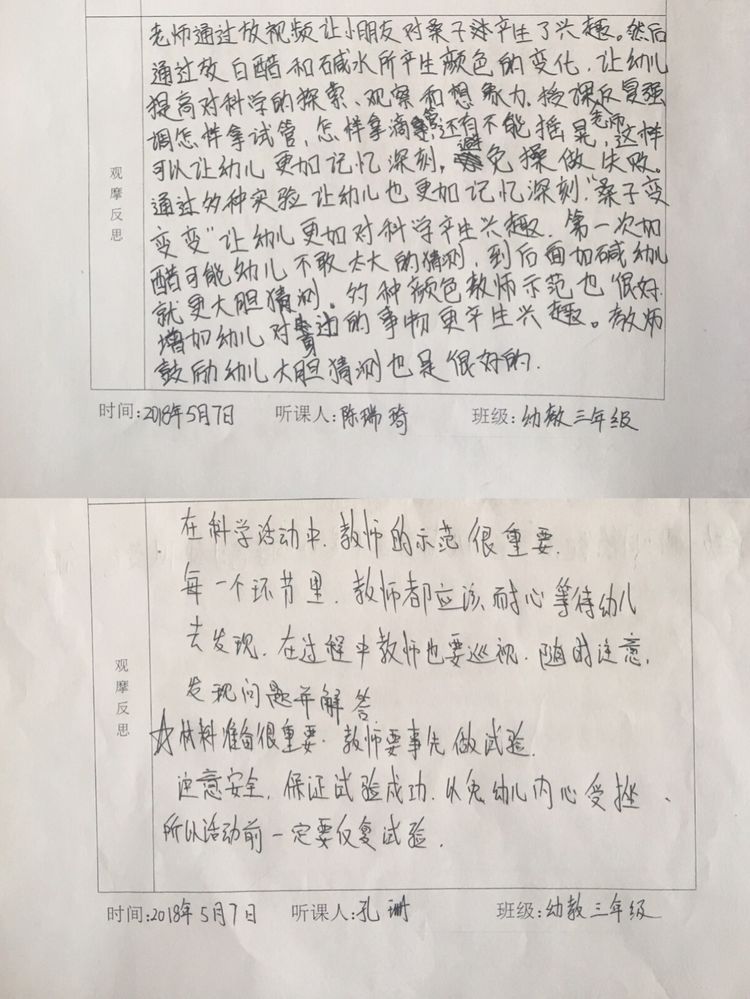 老师通过放视频让小朋友对桑子汁产生了兴趣。然后
通过放白醋和碱水所产生颜色的变化，让幼儿
提高对科学的探索、观察和想象力。授课反复强
调怎样拿试管，怎样拿滴管，还有不能摇晃，老师这样
可以让幼儿更加记忆深刻，避免操做失败。
通过多种实验让幼儿也更加记忆深刻."桑子变
变变"让幼儿更加对科学产生兴趣．第一次加
醋可能幼儿不敢太大的猜测，到后面加碱幼儿
就更大胆猜测．的种颜色教师示范也很好．
增加幼儿对身边的事物更产生兴趣。教师
鼓励幼儿大胆猜测也是很好的．
观摩反思
时间:2018年5月7日 听课人:陈瑞琦 班级:幼教三年级
在科学活动中．教师的示范很重要．
每一个环节里．教师都应该耐心等待幼儿
去发现．在过程中教师也要巡视．随时注意，
发现问题并解答．
观摩反思
☆材料准备很重要．教师要事先做试验．
注意安全，保证试验成功．以免幼儿内心受挫、
所以活动前一定要反复试验．
时间:2018年5月7日 听课人:孔珊 班级:幼教三年级